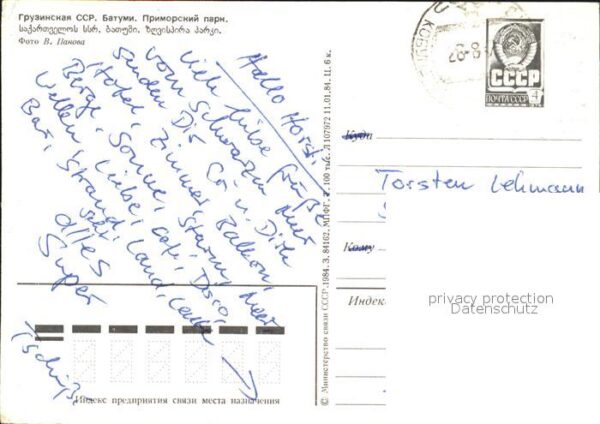 Грузинская ССР. Батуми. Приморский парк.
საქართველოს სსრ. ბათუმი. ზღვისპირა პარკი.
Фото В. Панова
Hallo Horst!
viele liebe Grüße
vom Schwarzen Meer
senden Dir Co u. Dirk
Hotel, Zimmer, Balkon,
Berge, Sonne, Sturm, Meer
Wellen, Liebe, Café, Disco,
Bar, Strand, Land, Leute →
alles
Super
Tschüß
© Министерство связи СССР. 1984. З. 84162. МПФГ. Т. 100 тыс. Д 107972 11.01.84. Ц. 6 к.
28-8
СССР
ПОЧТА СССР 4
Куда
Torsten Lehmann
Кому
Индекс
privacy protection
Datenschutz
Индекс предприятия связи места назначения